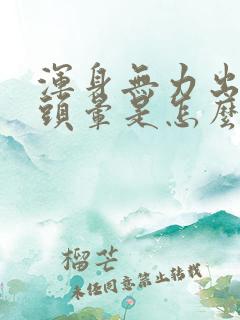 渾身無力出
頭暈是怎麼
榴芒
未經同意禁止轉載